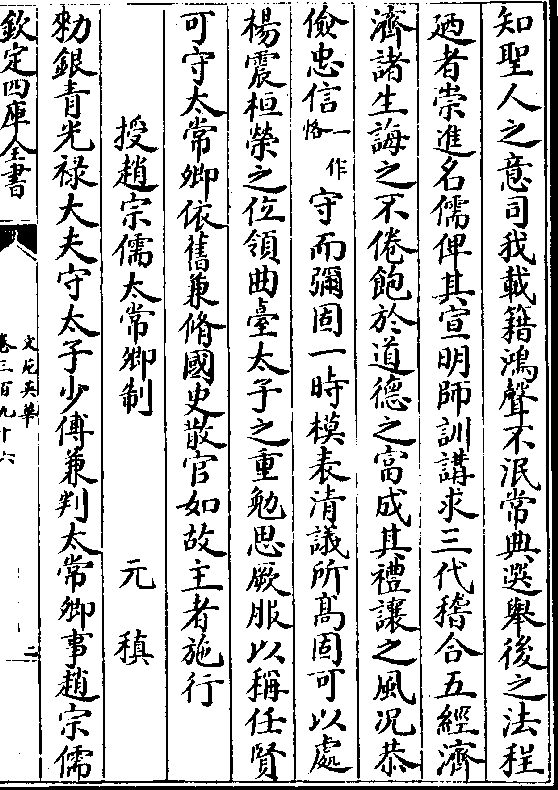 知聖人之意司我載籍鴻聲不泯常典選舉後之法程
廼者崇進名儒俾其宣明師訓講求三代稽合五經濟
濟諸生誨之不倦飽於道德之富成其禮讓之風况恭
儉忠信一作恪守而彌固一時模表清議所髙固可以處
楊震桓榮之位領曲臺太子之重勉思厥服以稱任賢
可守太常卿依舊兼脩國史散官如故主者施行
授趙宗儒太常卿制 元稹
勑銀青光禄大夫守太子少傅兼判太常卿事趙宗儒
欽定四庫全書
文苑英華
卷三百九十六
二